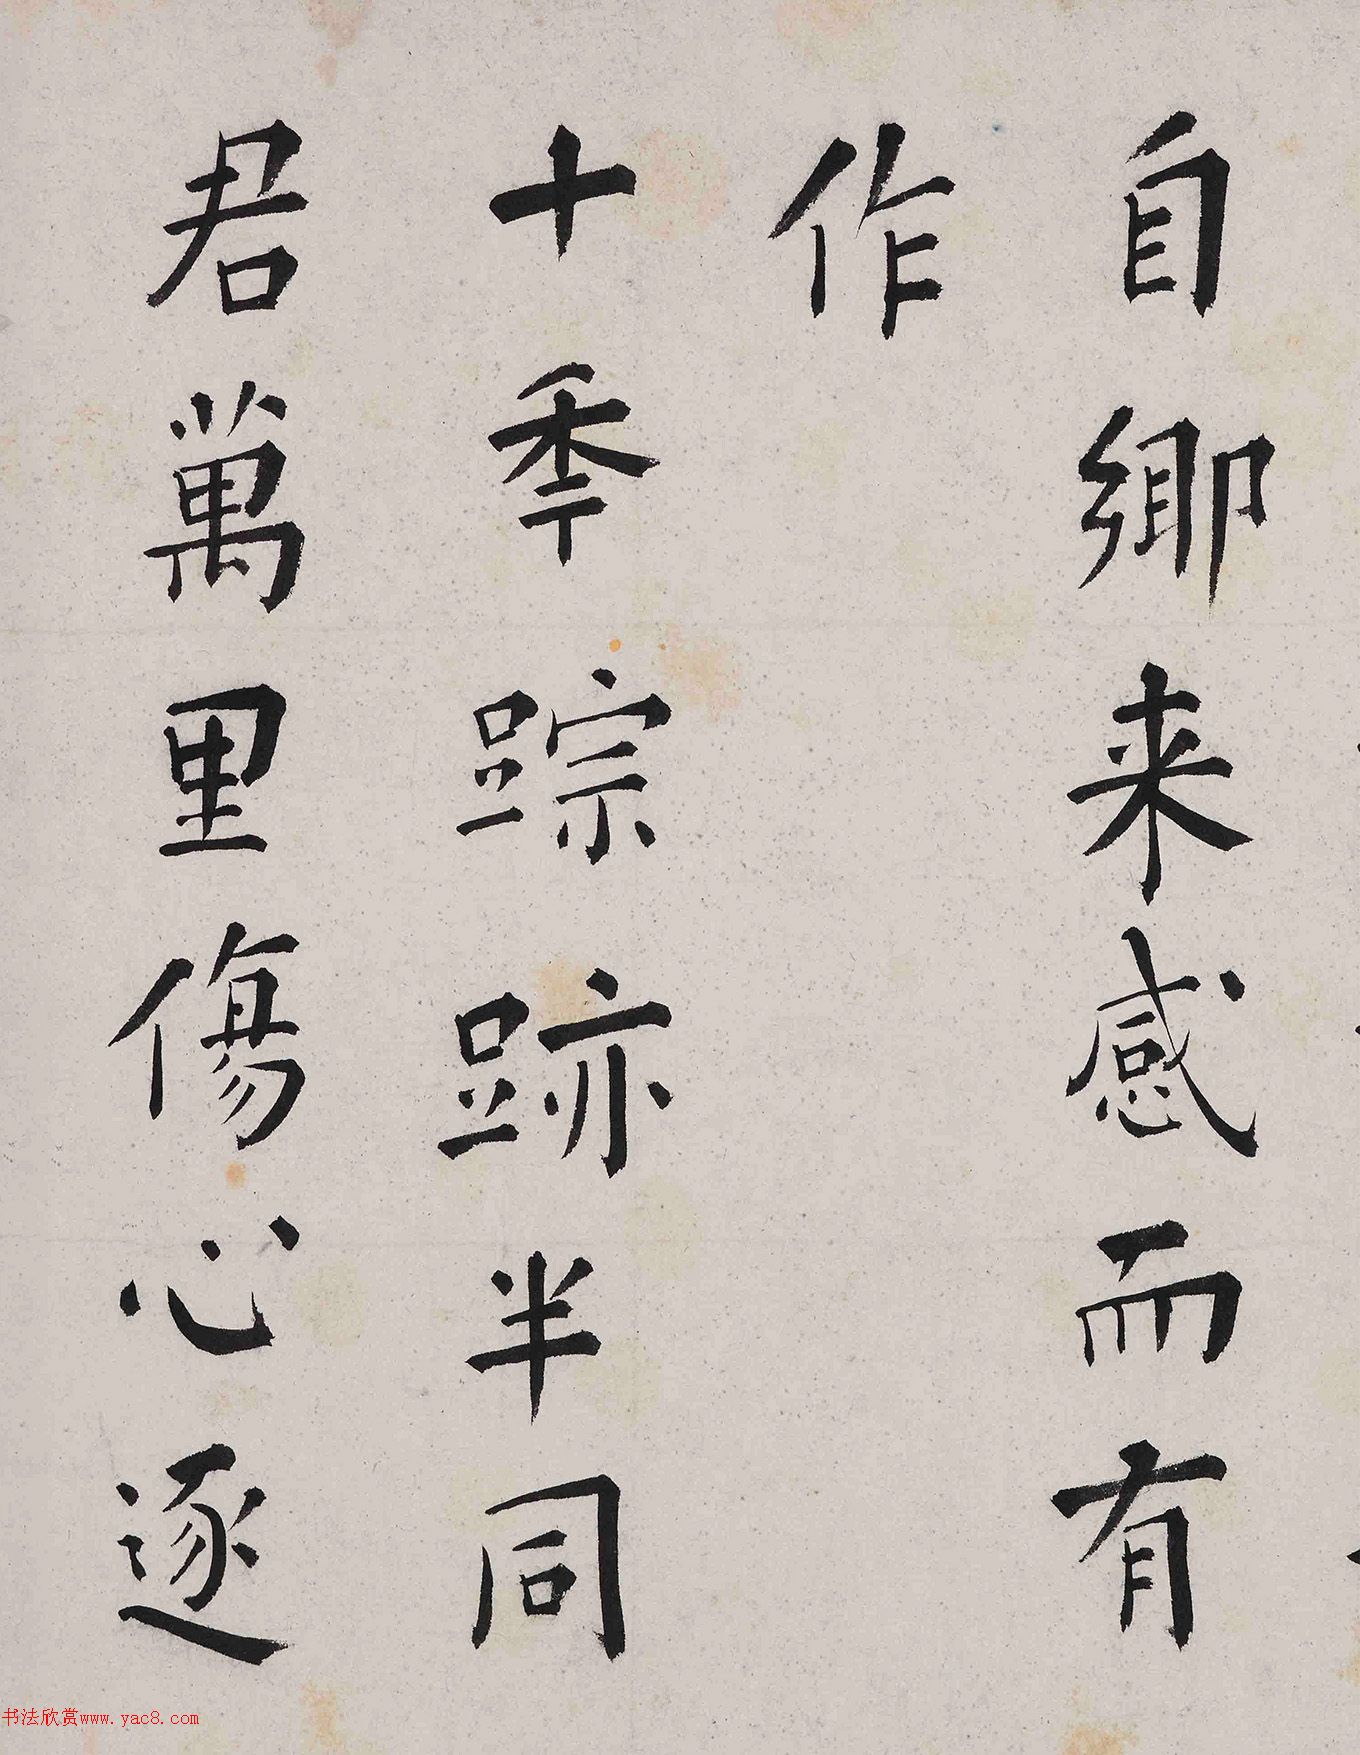 自鄉来感而有
作
十秊踪跡半同
君萬里傷心逐
书法欣赏www.yac8.com